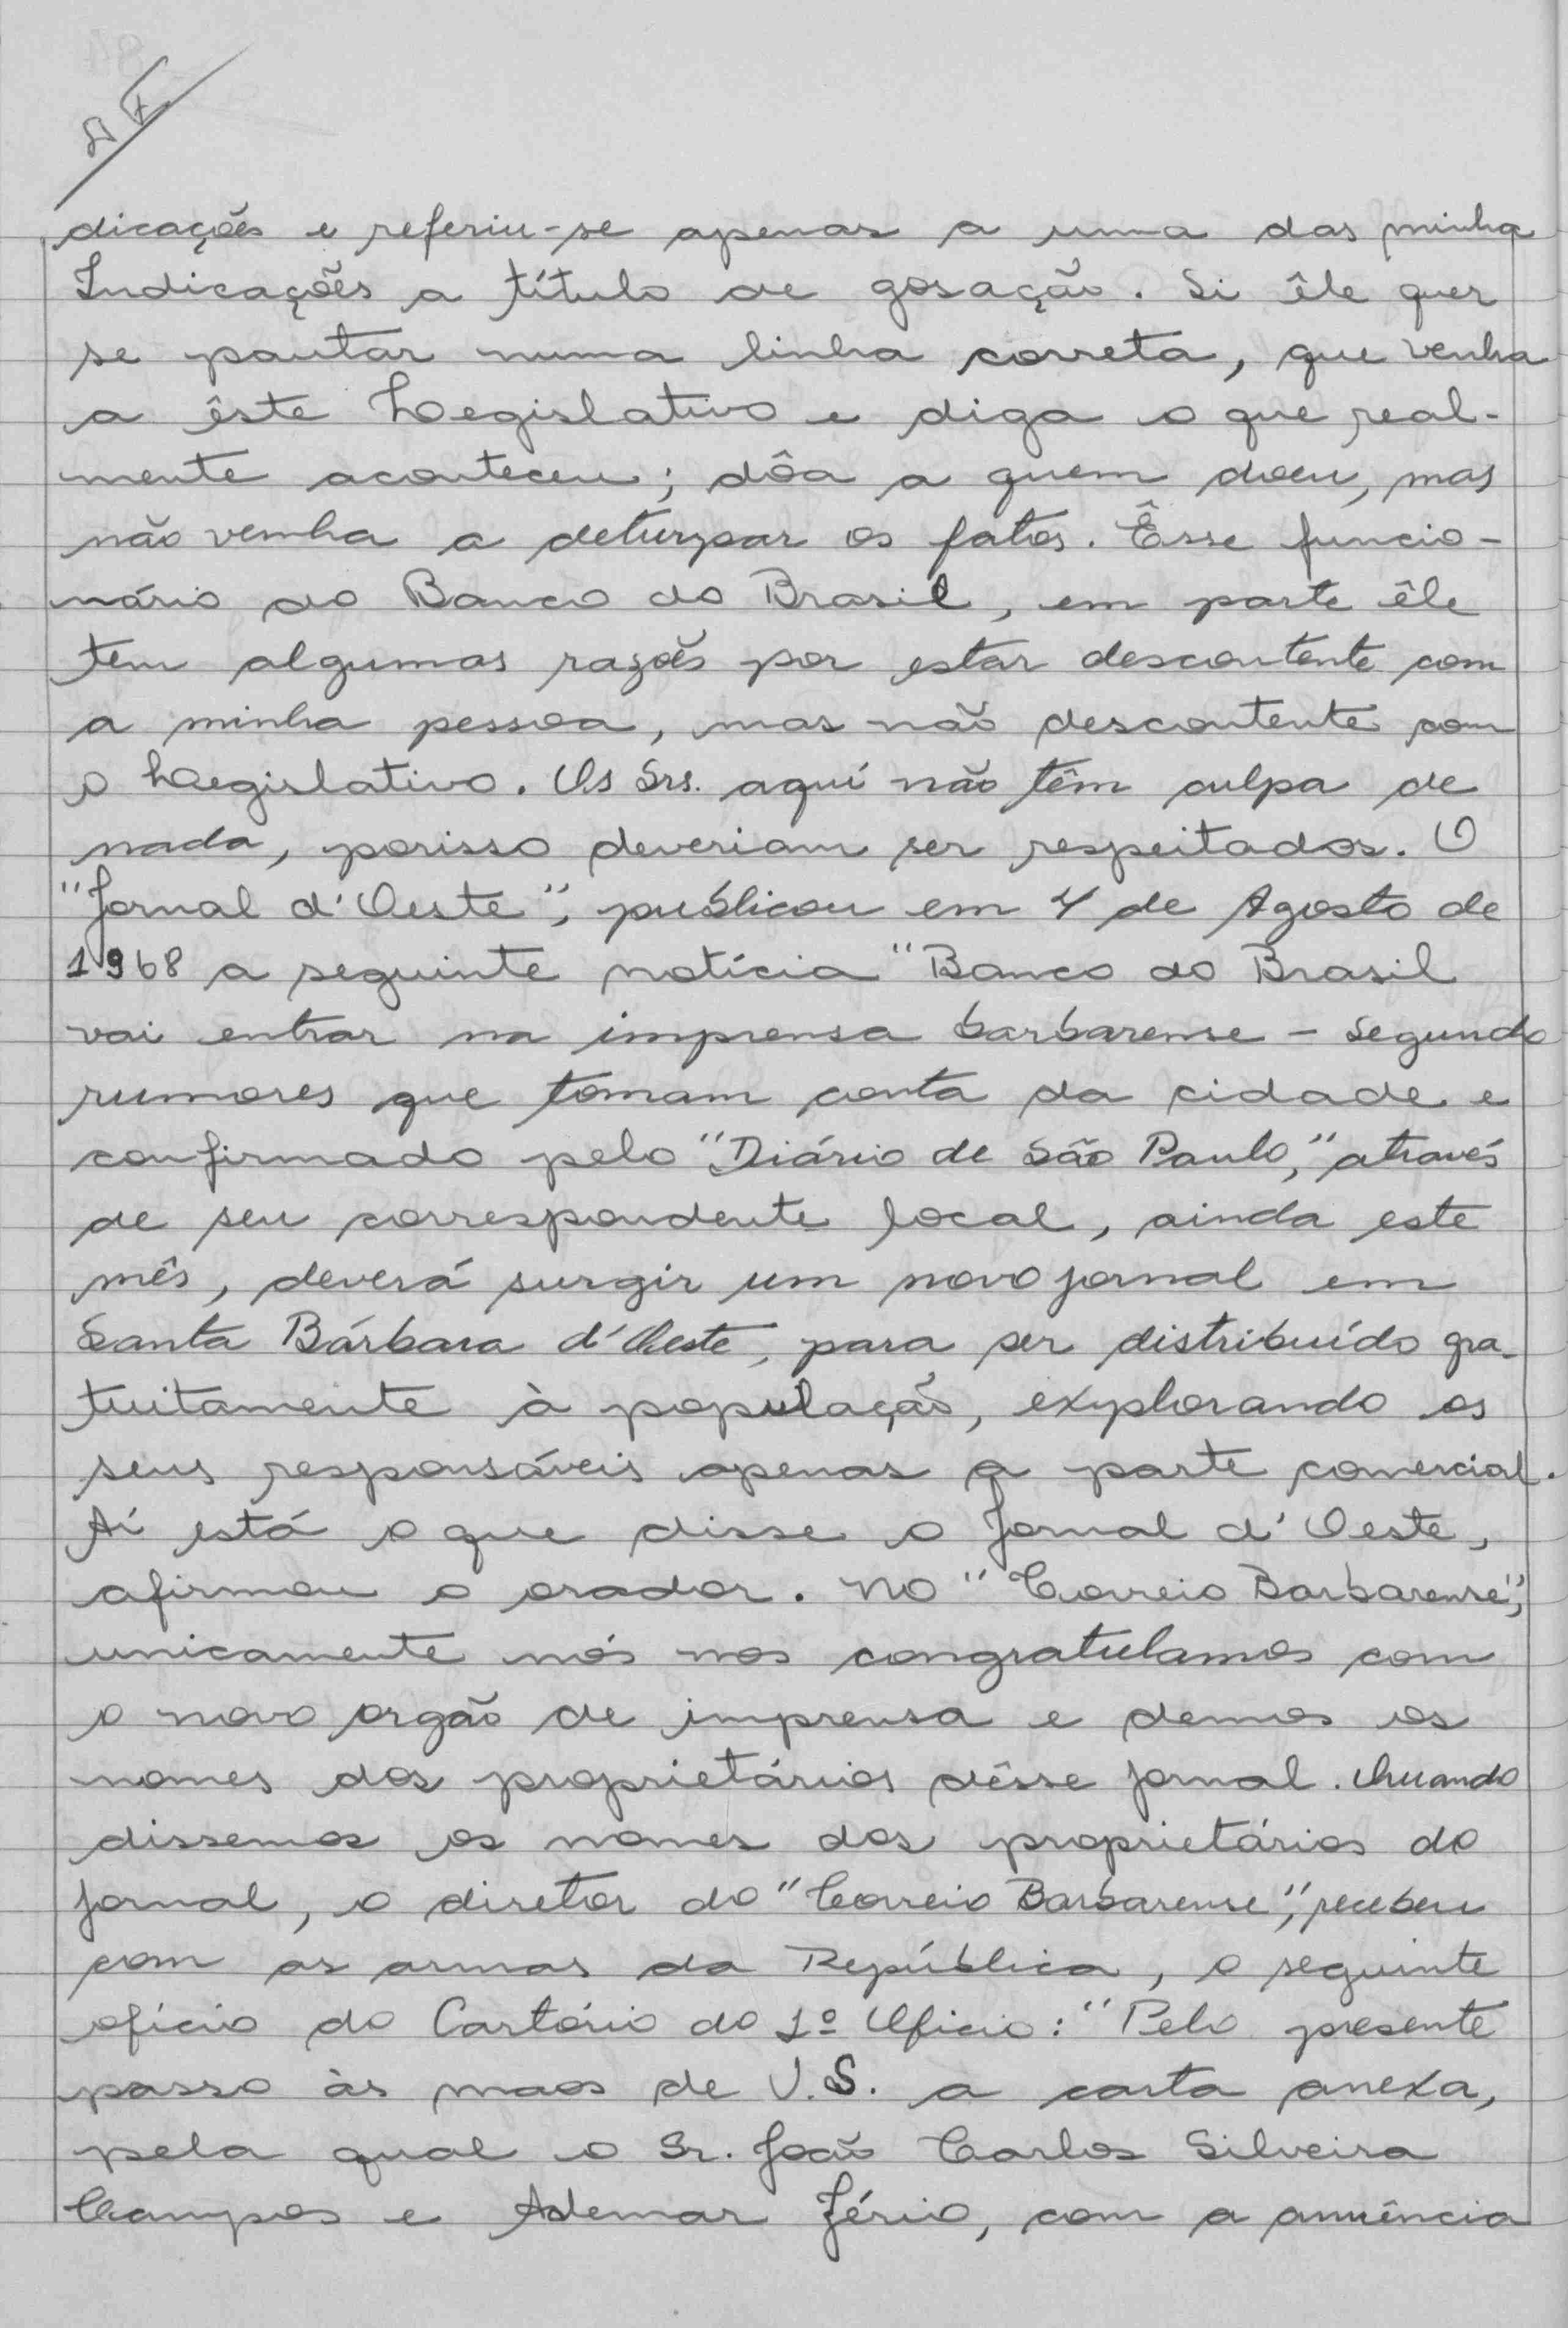 dicações e referiu-se apenas a uma das minha
Indicações a título de gosação. Si êle quer
se pautar numa linha correta, que venha
a êste Legislativo e diga o que real-
mente aconteceu; dôa a quem doeu, mas
não venha a deturpar os fatos. Êsse funcio-
nário do Banco do Brasil, em parte êle
tem algumas razões por estar descontente com
a minha pessoa, mas não descontente com
o Legislativo. Os Srs. aquí não têm culpa de
nada, porisso deveriam ser respeitados. O
"Jornal d'Oeste", publicou em 4 de Agosto de
1968 a seguinte notícia "Banco do Brasil
vai entrar na imprensa barbarense - Segundo
rumores que tomam conta da cidade e
confirmado pelo "Diário de São Paulo," através
de seu correspondente local, ainda este
mês, deverá surgir um novo jornal em
Santa Bárbara d'Oeste, para ser distribuído gra-
tuitamente à população, explorando os
seus responsáveis apenas a parte comercial.
Aí está o que disse o Jornal d'Oeste,
afirmou o orador. No "Correio Barbarense",
unicamente nós nos congratulamos com
o novo orgão de imprensa e demos os
nomes dos proprietários dêsse jornal. Quando
dissemos os nomes dos proprietários do
jornal, o diretor do "Correio Barbarense", recebeu
com as armas da República, o seguinte
ofício do Cartório do 1º Ofício: "Pelo presente
passo às maos de V.S. a carta anexa,
pela qual o Sr. João Carlos Silveira
Campos e Ademar Jério, com a anuência